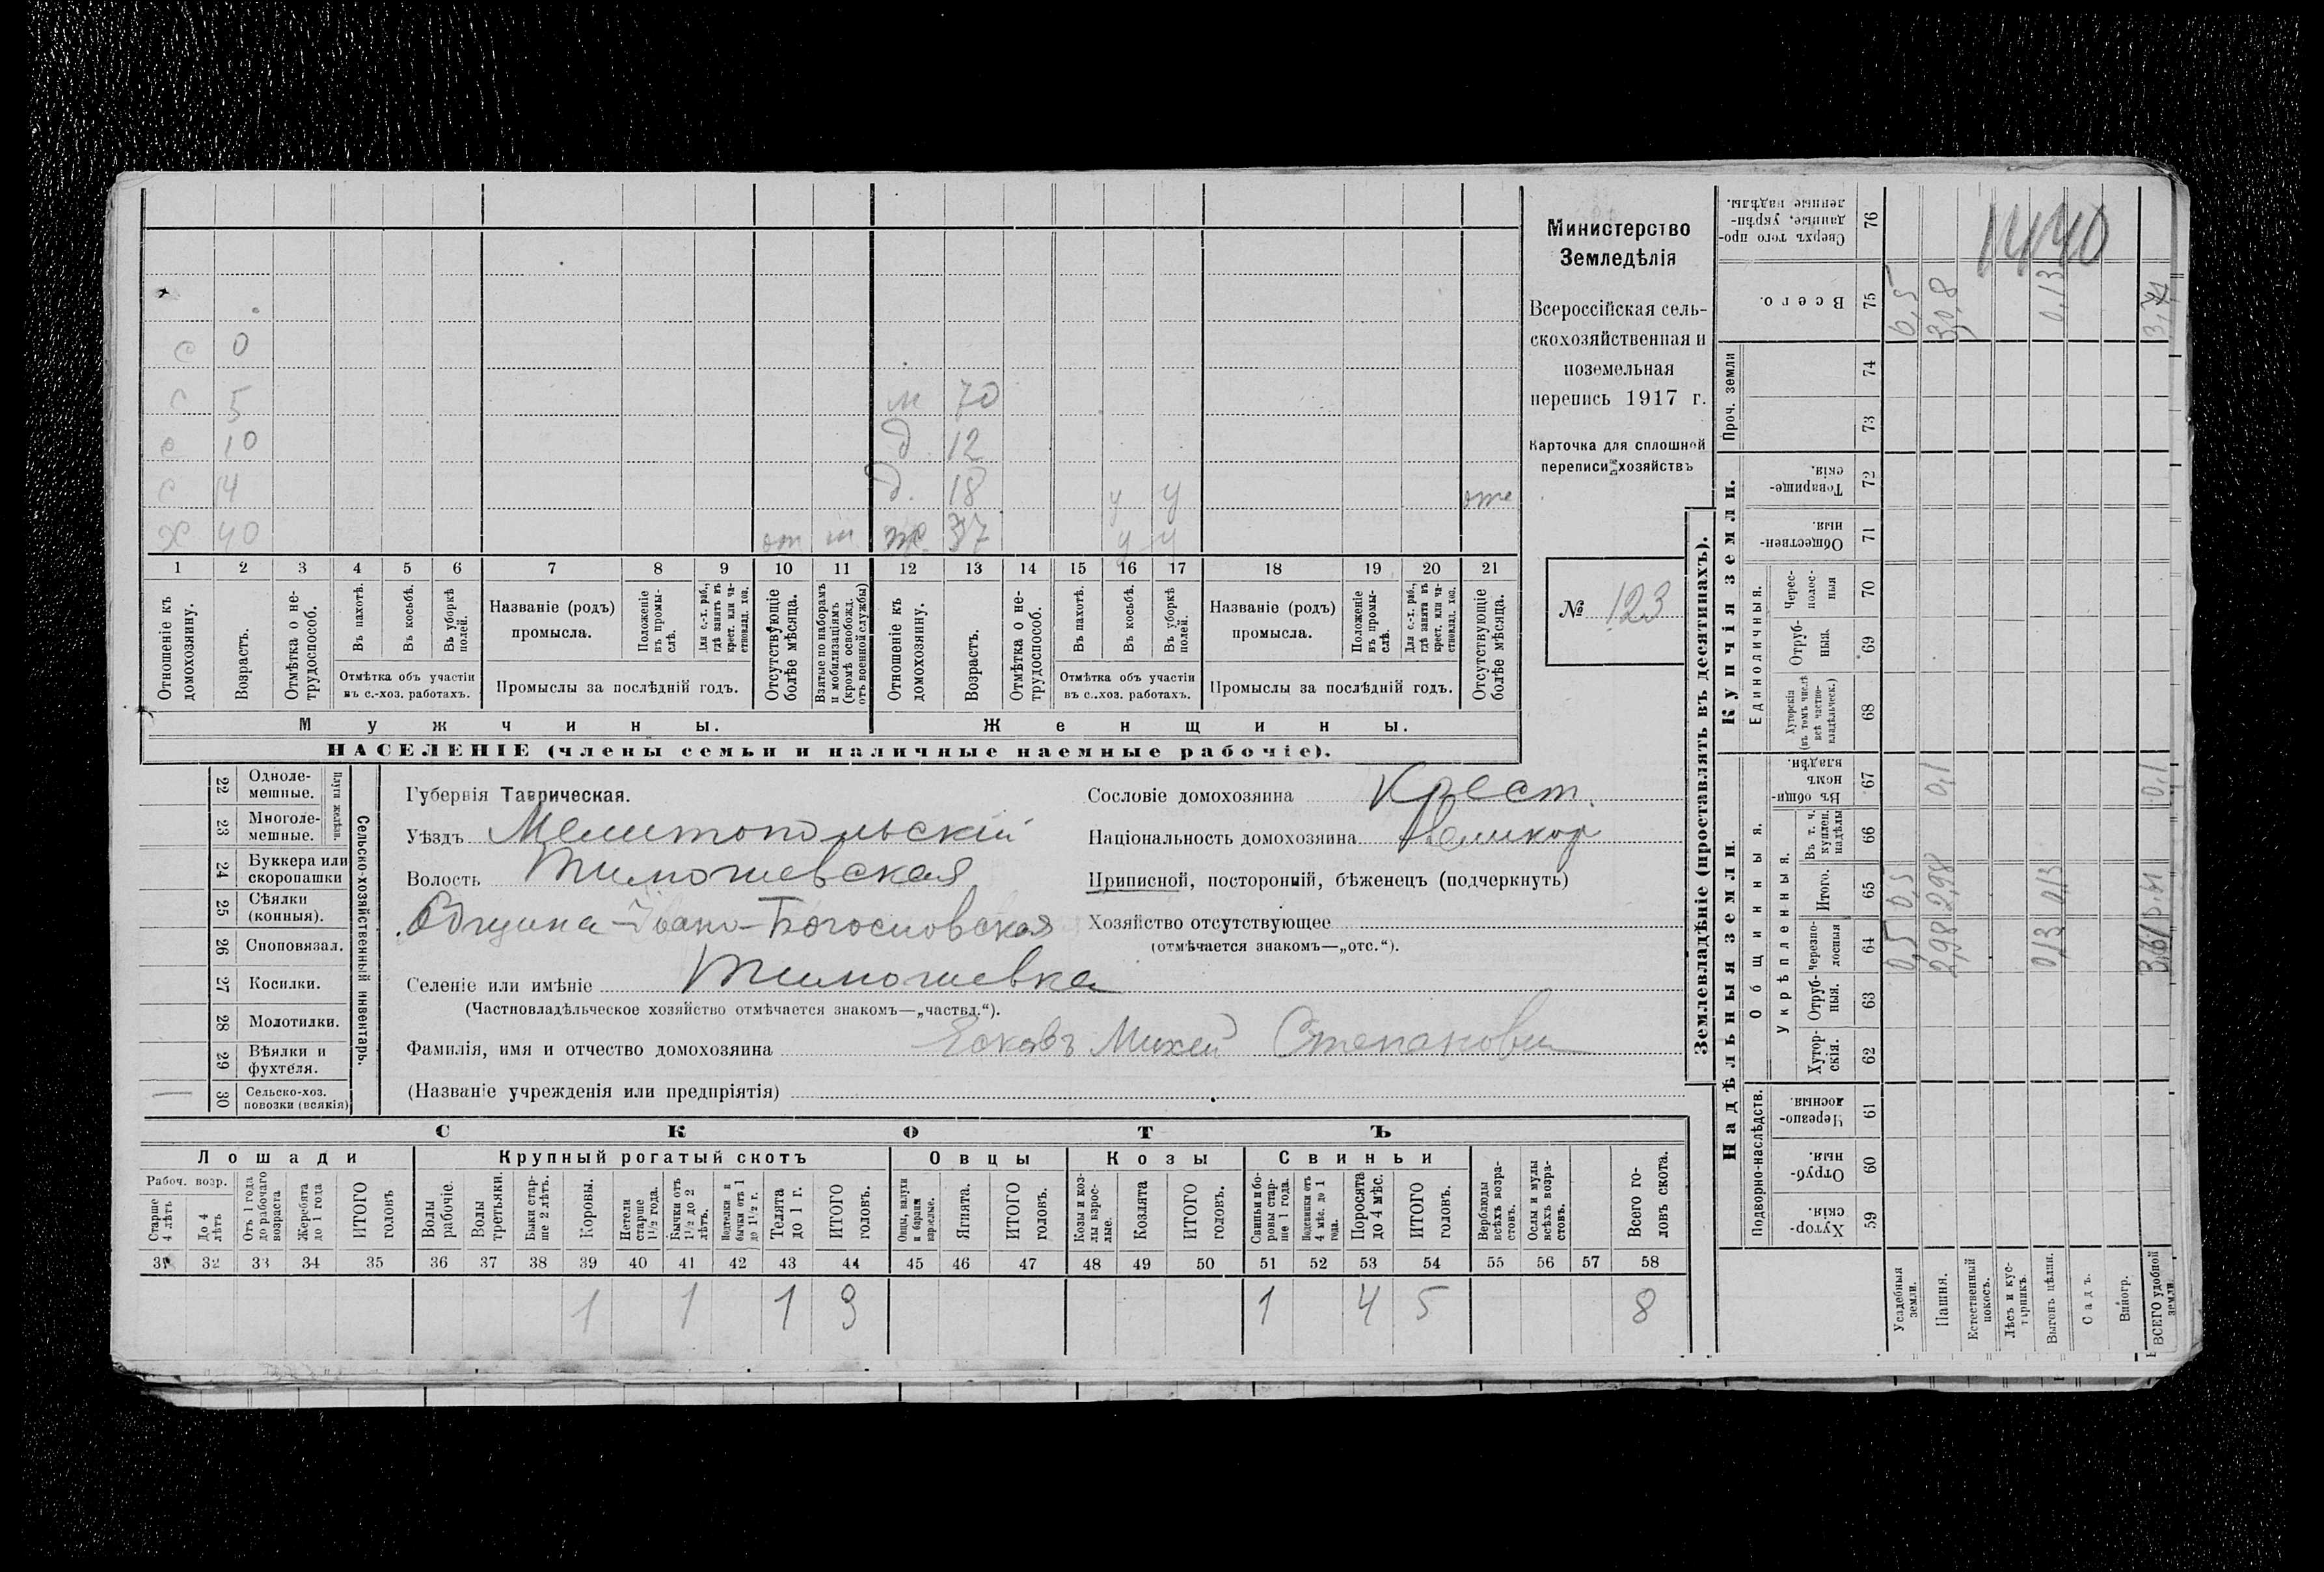 1440
Министерство
Земледѣлія
Всероссійская сель-
скохозяйственная и
поземельная
перепись 1917 г.
Карточка для сплошной
переписи хозяйствъ
№ 123
с 0
с 5
м 70
с 10
д 12
с 14
д. 18 у у отс
х 40 от ж 37 у у
1 2 3 4 5 6 7 8 9 10 11 12 13 14 15 16 17 18 19 20 21
Отношеніе къ домохозяину.
Возрастъ.
Отмѣтка о не-трудоспособ.
Въ пахотѣ.
Въ косьбѣ.
Въ уборкѣ полей.
Отмѣтка объ участіи въ с.-хоз. работахъ.
Названіе (родъ) промысла.
Положеніе въ промы-слѣ.
Для с.-х. раб., гдѣ занятъ въ крест. или ча-стновлад. хоз.
Промыслы за послѣдній годъ.
Отсутствующіе болѣе мѣсяца.
Взятые по наборамъ и мобилизаціямъ (кромѣ освобожд. отъ военной службы)
Отношеніе къ домохозяину.
Возрастъ.
Отмѣтка о не-трудоспособ.
Въ пахотѣ.
Въ косьбѣ.
Въ уборкѣ полей.
Отмѣтка объ участіи въ с.-хоз. работахъ.
Названіе (родъ) промысла.
Положеніе въ промы-слѣ.
Для с.-х. раб., гдѣ занята въ крест. или ча-стновлад. хоз.
Промыслы за послѣдній годъ.
Отсутствующіе болѣе мѣсяца.
Мужчины. Женщины.
НАСЕЛЕНІЕ (члены семьи и наличные наемные рабочіе).
Сельско-хозяйственный инвентарь.
Плуги желѣзн.
22 Одноле-мешные.
23 Многоле-мешные.
24 Буккера или скоропашки
25 Сѣялки (конныя).
26 Сноповязал.
27 Косилки.
28 Молотилки.
29 Вѣялки и фухтеля.
30 Сельско-хоз. повозки (всякія)
Губернія Таврическая.
Уѣздъ Мелитопольскій
Волость Тимошевская
Община - Іоано-Богословская
Селеніе или имѣніе Тимошевка
(Частновладѣльческое хозяйство отмѣчается знакомъ—„частвл.“).
Фамилія, имя и отчество домохозяина Есковъ Михей Степанович
(Названіе учрежденія или предпріятія)
Сословіе домохозяина Крест.
Національность домохозяина Великор
Приписной, посторонній, бѣженецъ (подчеркнуть)
Хозяйство отсутствующее
(отмѣчается знакомъ—„отс.“).
СКОТЪ
Лошади Крупный рогатый скотъ Овцы Козы Свиньи
Рабоч. возр.
Старше 4 лѣтъ
До 4 лѣтъ
Отъ 1 года до рабочаго возраста
Жеребята до 1 года
ИТОГО головъ
Волы рабочіе.
Волы третьяки.
Быки стар-ше 2 лѣтъ.
Коровы.
Нетели старше 1½ года.
Бычки отъ 1½ до 2 лѣтъ.
Подтелки и бычки отъ 1 до 1½ г.
Телята до 1 г.
ИТОГО головъ.
Овцы, валухи и бараны взрослые.
Ягнята.
ИТОГО головъ.
Козы и коз-лы взрос-лые.
Козлята
ИТОГО головъ.
Свиньи и бо-ровы стар-ше 1 года.
Подсвинки отъ 4 мѣс. до 1 года.
Поросята до 4 мѣс.
ИТОГО головъ.
Верблюды всѣхъ возра-стовъ.
Ослы и мулы всѣхъ возра-стовъ.
Всего го-ловъ скота.
31 32 33 34 35 36 37 38 39 40 41 42 43 44 45 46 47 48 49 50 51 52 53 54 55 56 57 58
1 1 1 3 1 4 5 8
Землевладѣніе (проставлять въ десятинахъ).
Надѣльныя земли. Купчія земли. Проч. земли
Подворно-наслѣдств. Общинныя. Единоличныя.
Укрѣпленныя.
Хутор-скія. 59
Отруб-ныя. 60
Черезпо-лосныя. 61
Хутор-скія. 62
Отруб-ныя. 63
Черезпо-лосныя 64
Итого. 65
Въ т. ч. куплен. надѣлы 66
Въ общи-номъ владѣн. 67
Хуторскія (въ томъ числѣ всѣ частно-владѣльческ.) 68
Отруб-ныя. 69
Черес-полос-ныя 70
Обществен-ныя. 71
Товарище-скія. 72
73
74
Всего. 75
Сверхъ того про-данные, укрѣп-ленные надѣлы. 76
Усадебныя земли. 0,5 0,5 0,5
Пашня. 2,98 2,98 0,1 3,08
Естественный покосъ.
Лѣсъ и кус-тарникъ.
Выгонъ цѣлин. 0,13 0,13 0,13
Садъ.
Виногр.
ВСЕГО удобной земли. 3,61 3,61 0,1 3,71